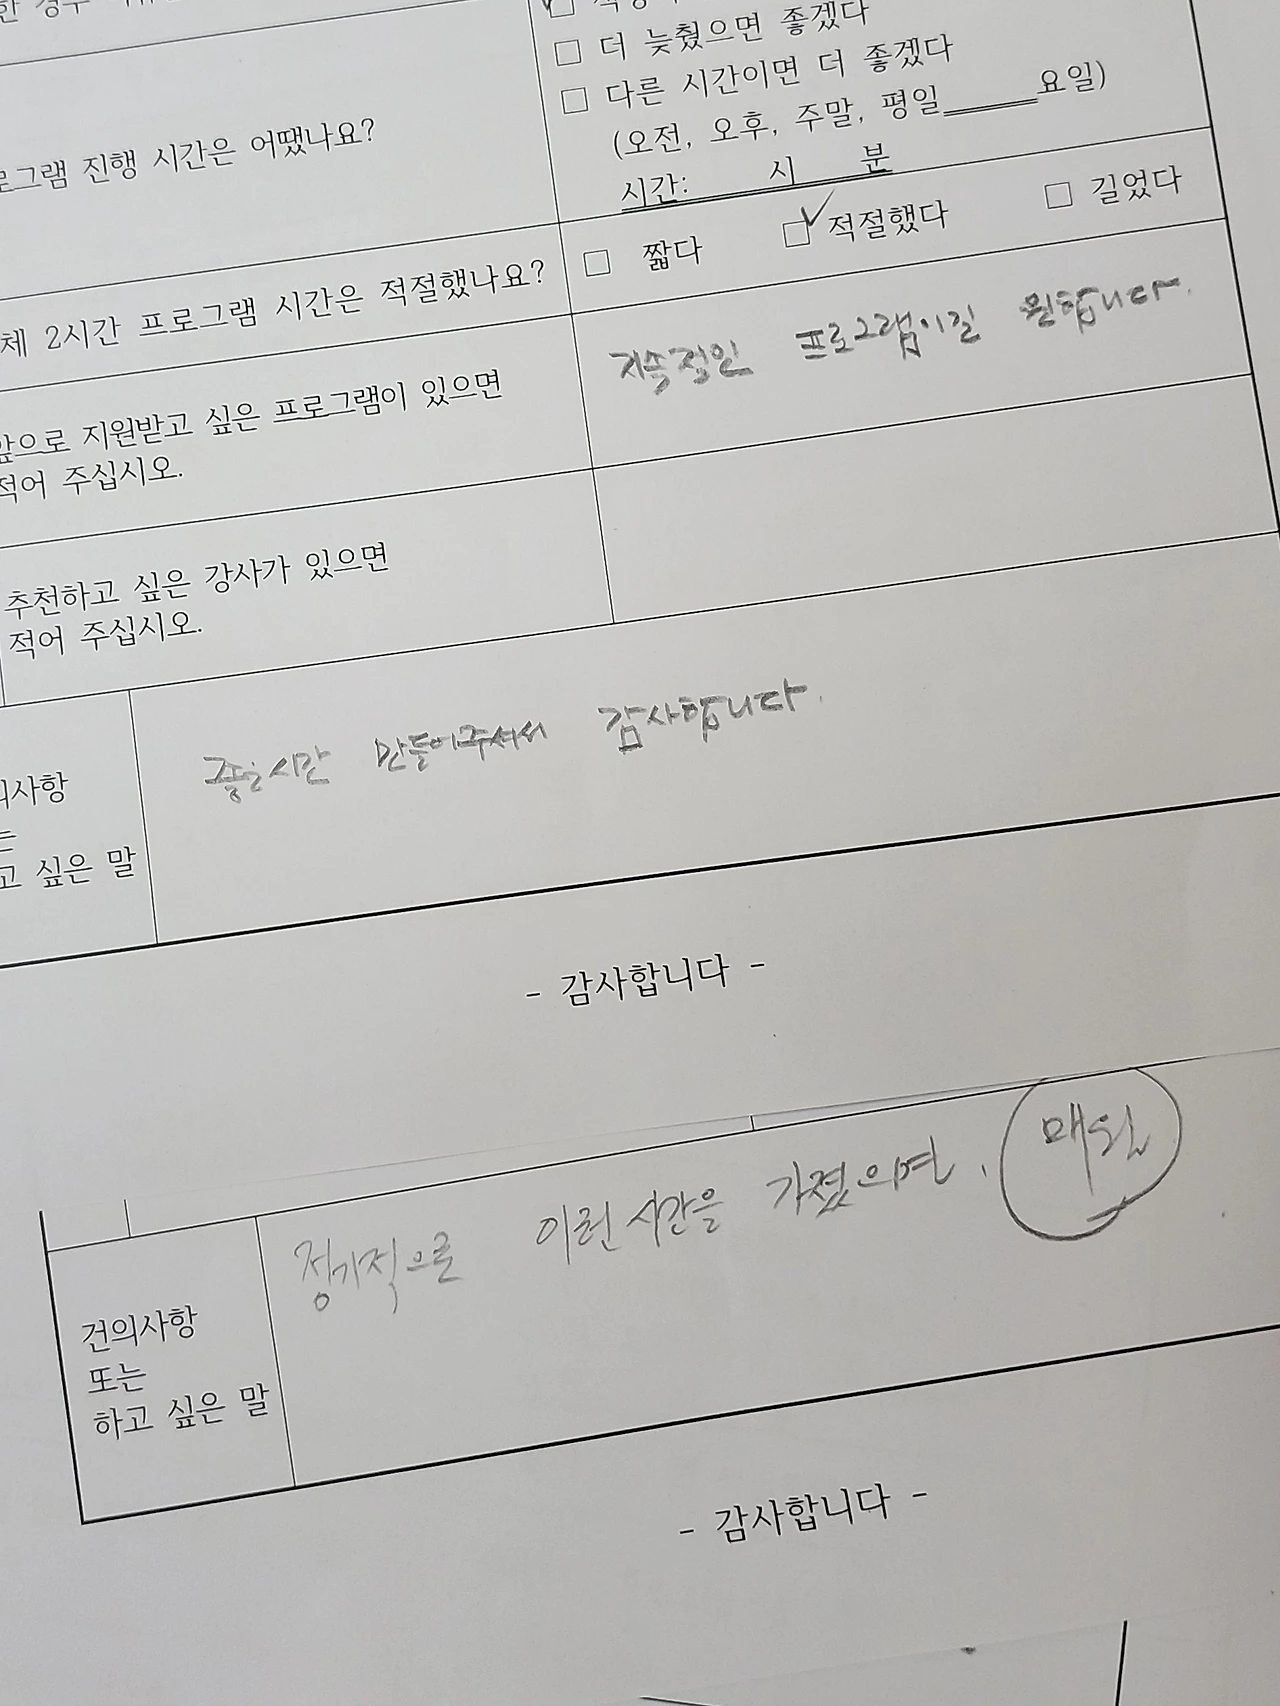 한 경우
□ 더 늦췄으면 좋겠다
□ 다른 시간이면 더 좋겠다
(오전, 오후, 주말, 평일_____요일)
시간: 시 분
로그램 진행 시간은 어땠나요?
체 2시간 프로그램 시간은 적절했나요?
□ 짧다 ☑ 적절했다 □ 길었다
앞으로 지원받고 싶은 프로그램이 있으면
적어 주십시오.
지속적인 프로그램이길 원합니다.
추천하고 싶은 강사가 있으면
적어 주십시오.
의사항
는
고 싶은 말
좋은시간 만들어주셔서 감사합니다.
- 감사합니다 -
건의사항
또는
하고 싶은 말
정기적으로 이런 시간을 가졌으면. 매월
- 감사합니다 -